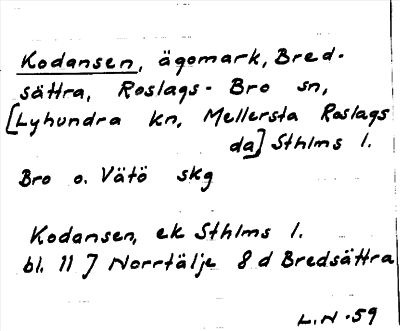 Kodansen, ägomark, Bred-
sättra, Roslags-Bro sn,
[Lyhundra kn, Mellersta Roslags
da] Sthlms l.
Bro o. Vätö skg
Kodansen, ek Sthlms l.
bl. 11 J Norrtälje 8 d Bredsättra
L.N -59